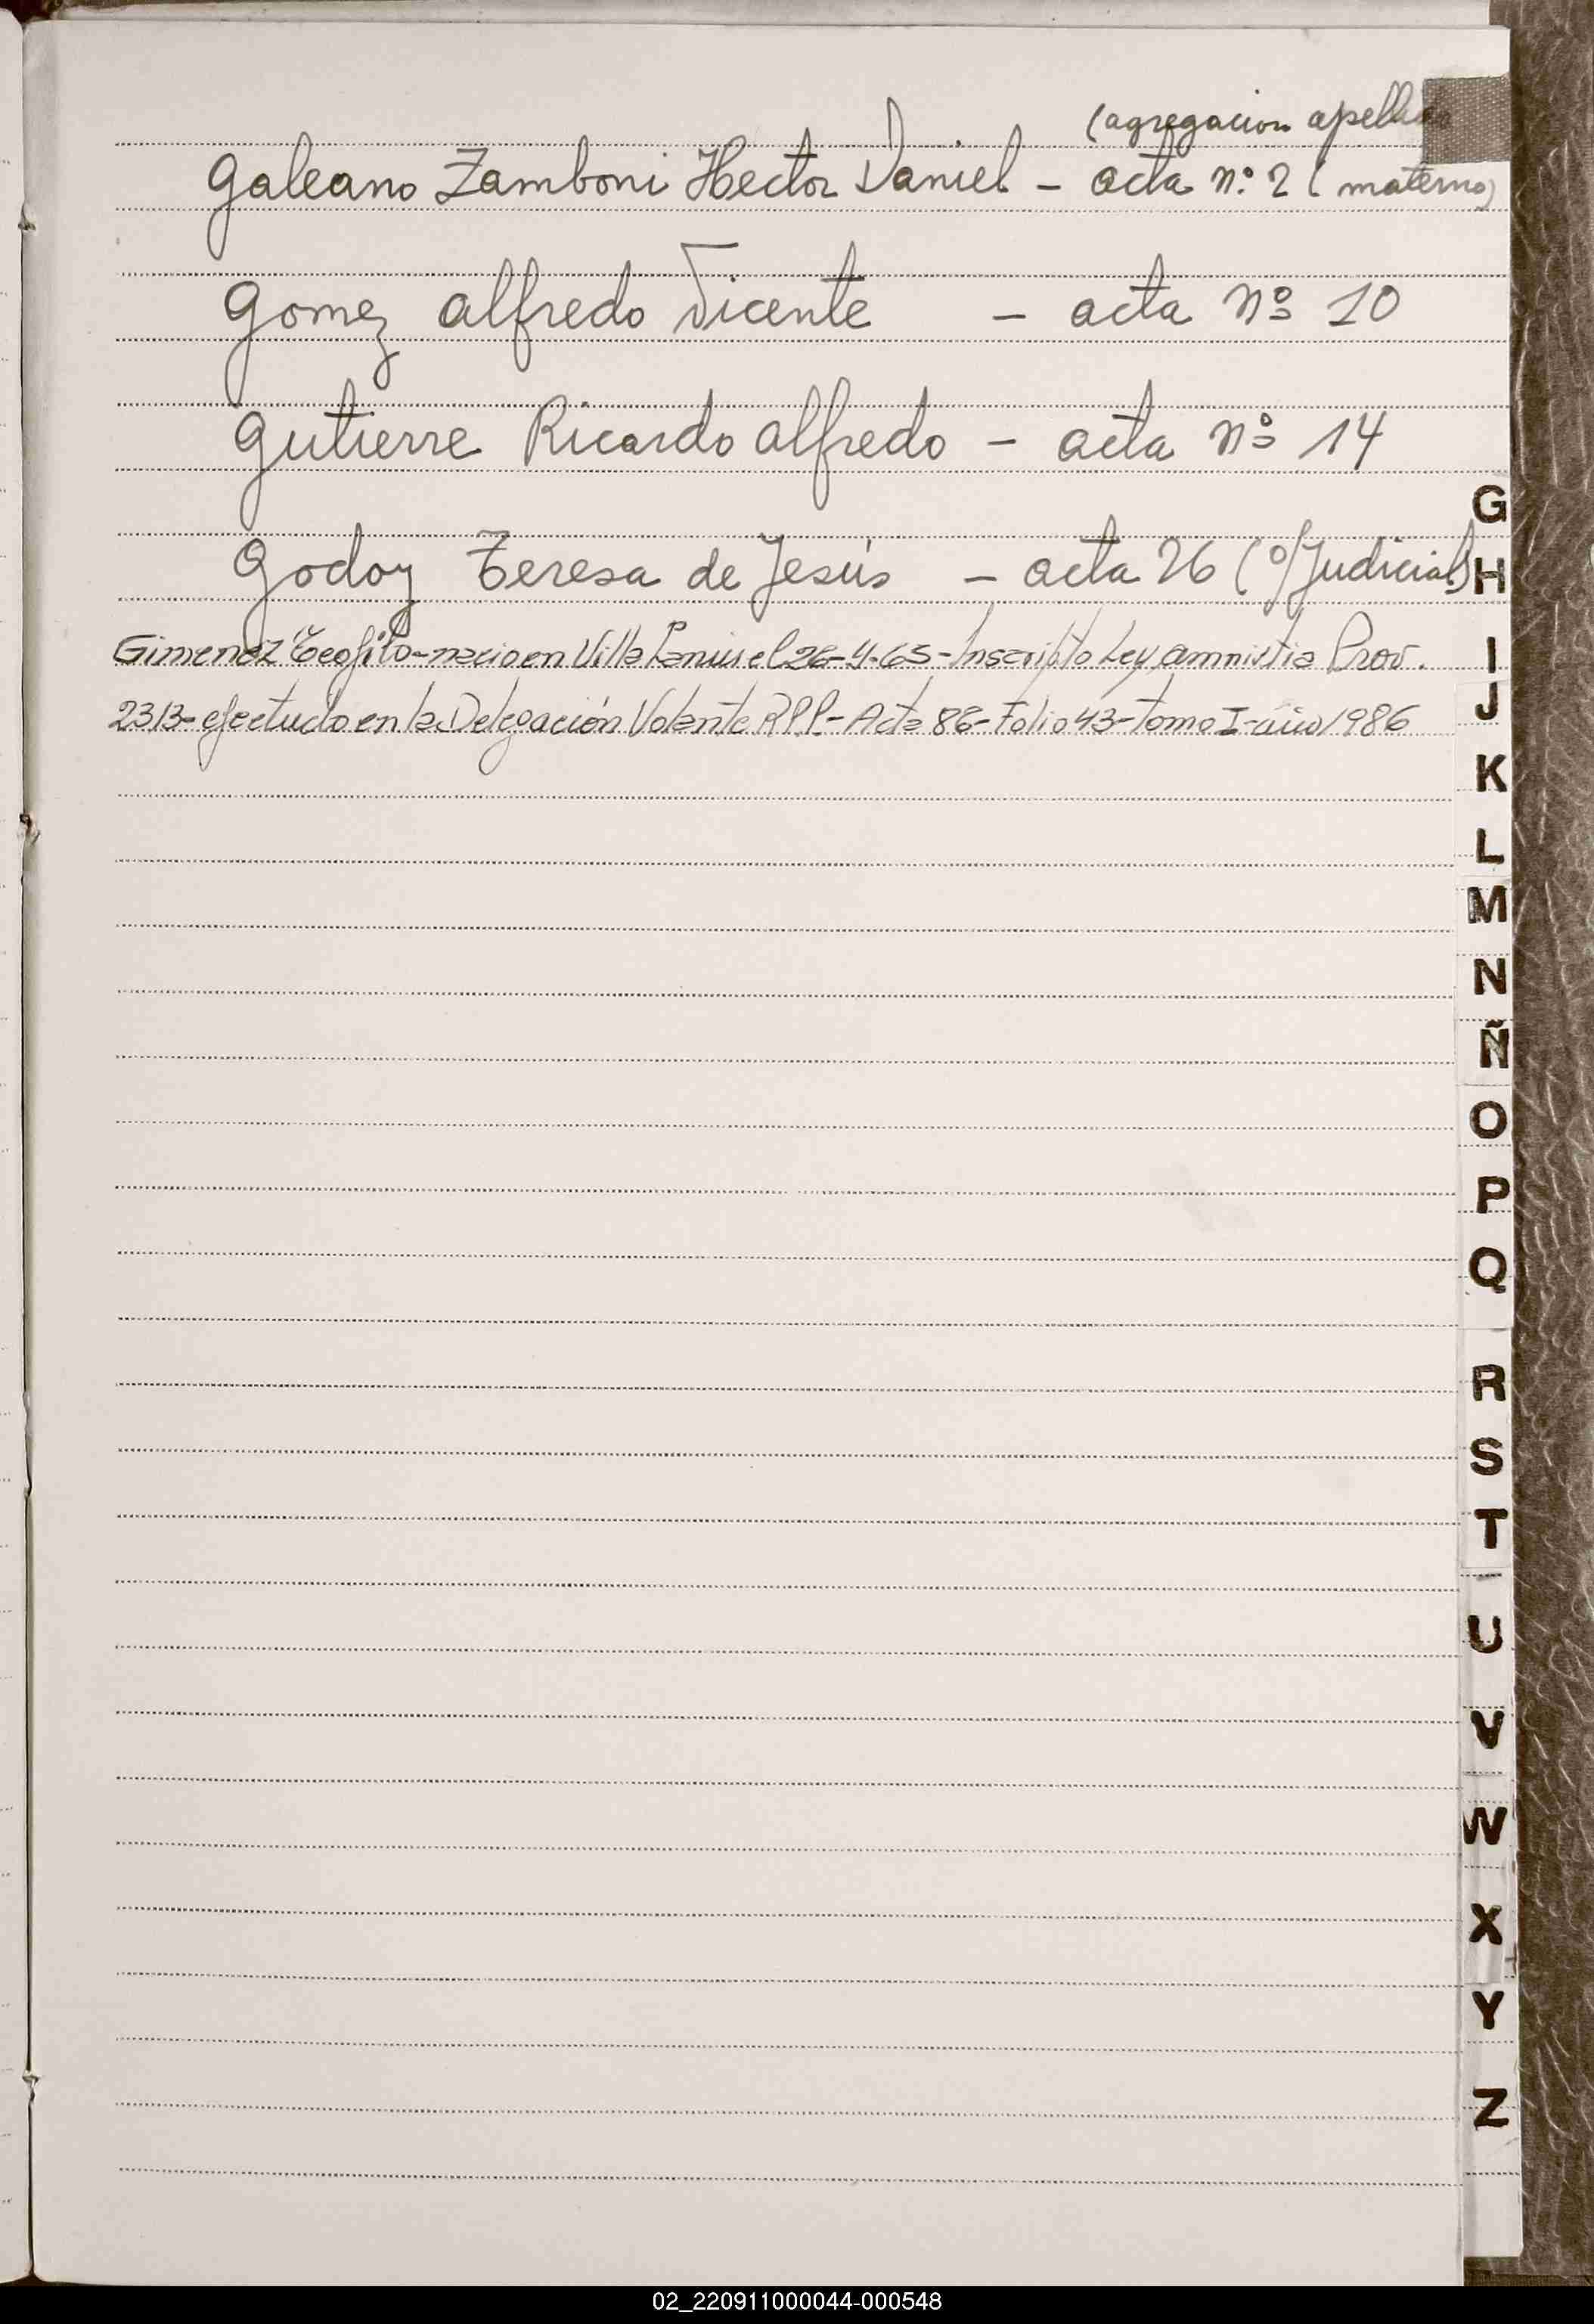 (agregacion apellido
Galeano Zamboni Hector Daniel - acta n.º 2 ( materno)
Gomez Alfredo Vicente - acta nº 10
Gutierre Ricardo Alfredo - acta nº 14
Godoy Teresa de Jesús - acta 26 (º/Judicial)
Gimenez Teofilo-nacio en Villa el 26-4-65-Inscripto Ley amnistia Prov.
2313-efectuado en la Delegación Volante RPP-Acta 86-Folio 43-Tomo I-año 1986
G
H
I
J
K
L
M
N
Ñ
O
P
Q
R
S
T
U
V
W
X
Y
Z
02_220911000044-000548